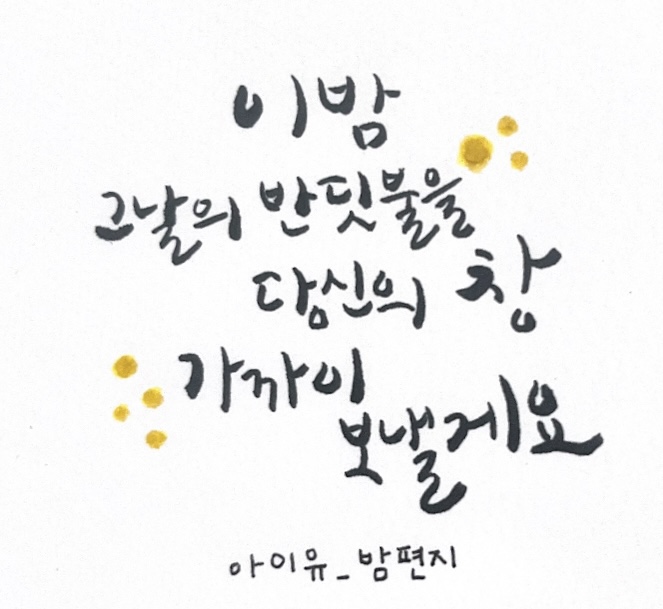 이 밤
그날의 반딧불을
당신의 창
가까이
보낼게요
아이유_밤편지